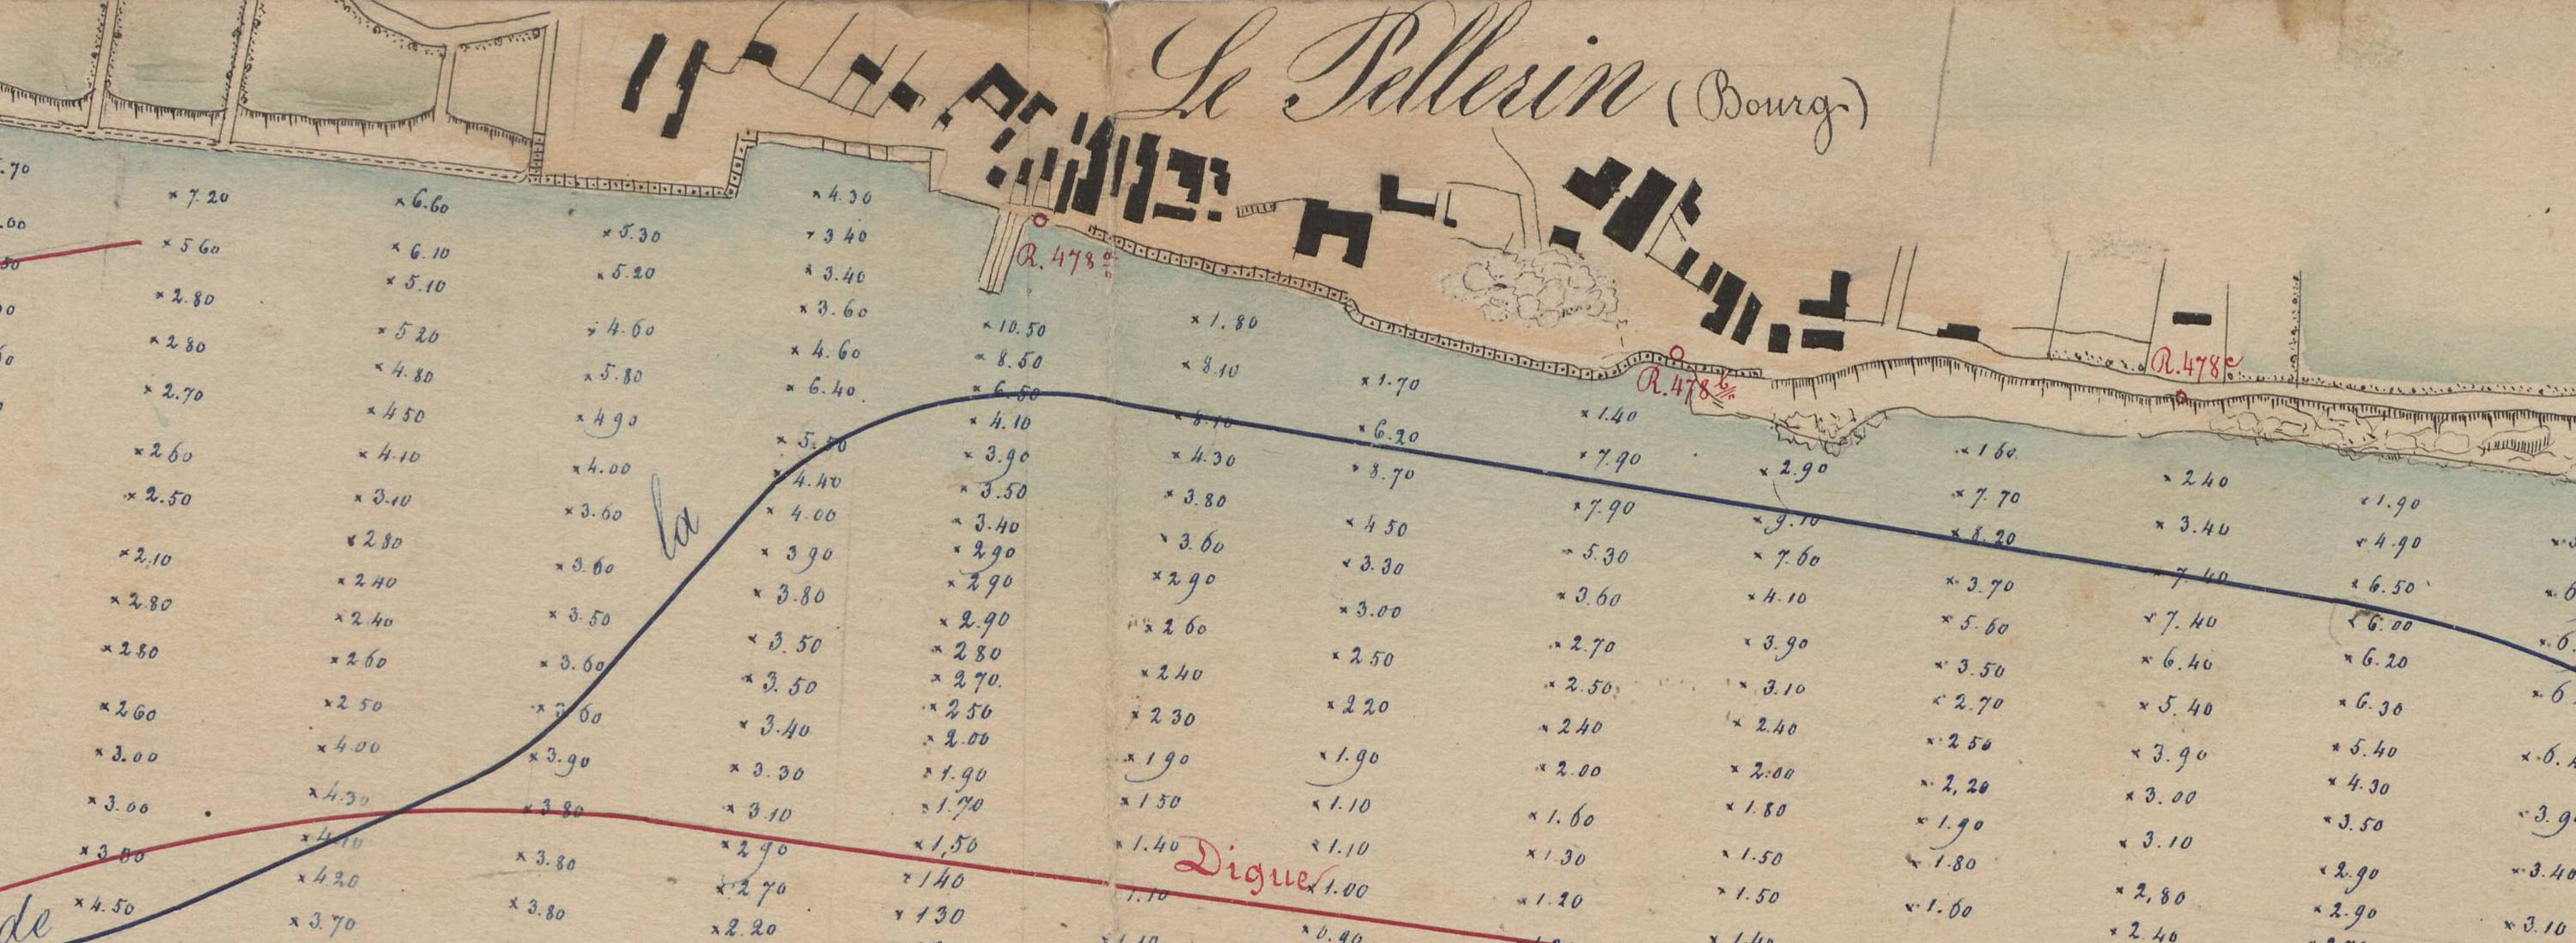 Le Pellerin (Bourg)
R. 478 a
R. 478 b
R. 478 c
la
Digue
de
7.20
5 60
2.80
2 80
2.70
2 60
2.50
2.10
2.80
2 80
2 60
3.00
3.00
4.50
6.60
6.10
5.10
5 20
4.80
4 50
4.10
3.10
2 80
2 40
2.40
2 60
2 50
4.00
4.30
4.20
3.70
5.30
5.20
4.60
5.80
4 90
4.00
3.60
3.60
3.50
3.60
3 60
3.90
3 80
3.80
3.80
4.30
3 40
3.40
3.60
4.60
6.40
5.50
4.40
4.00
3 90
3.80
3.50
3.50
3.40
3.30
3.10
2 90
2 70
2.20
10.50
8.50
6.50
4.10
3.90
3.50
3.40
2 90
2 90
2.90
2 80
2 70
2 50
2.00
1.90
1.70
1,50
1 40
1 30
1.80
8.10
8.10
4.30
3.80
3.60
2 90
2 60
2 40
2 30
1 90
1 50
1.40
1.10
1.70
6.20
8.70
4 50
3.30
3.00
2 50
2 20
1.90
1.10
1.10
1.00
0.90
1.40
7.90
7.90
5.30
3.60
2.70
2.50
2 40
2.00
1.60
1 30
1.20
2.90
9.10
7.60
4.10
3.90
3.10
2.40
2.00
1.80
1.50
1.50
1.40
1 60
7.70
8.20
3.70
5.60
3.50
2.70
2 50
2,20
1.90
1.80
1.60
2 40
3.40
7.40
7.40
6.40
5.40
3.90
3.00
3.10
2,80
2.40
1.90
4.90
6.50
6.00
6.20
6.30
5.40
4.30
3.50
2.90
2.90
3.40
3.10